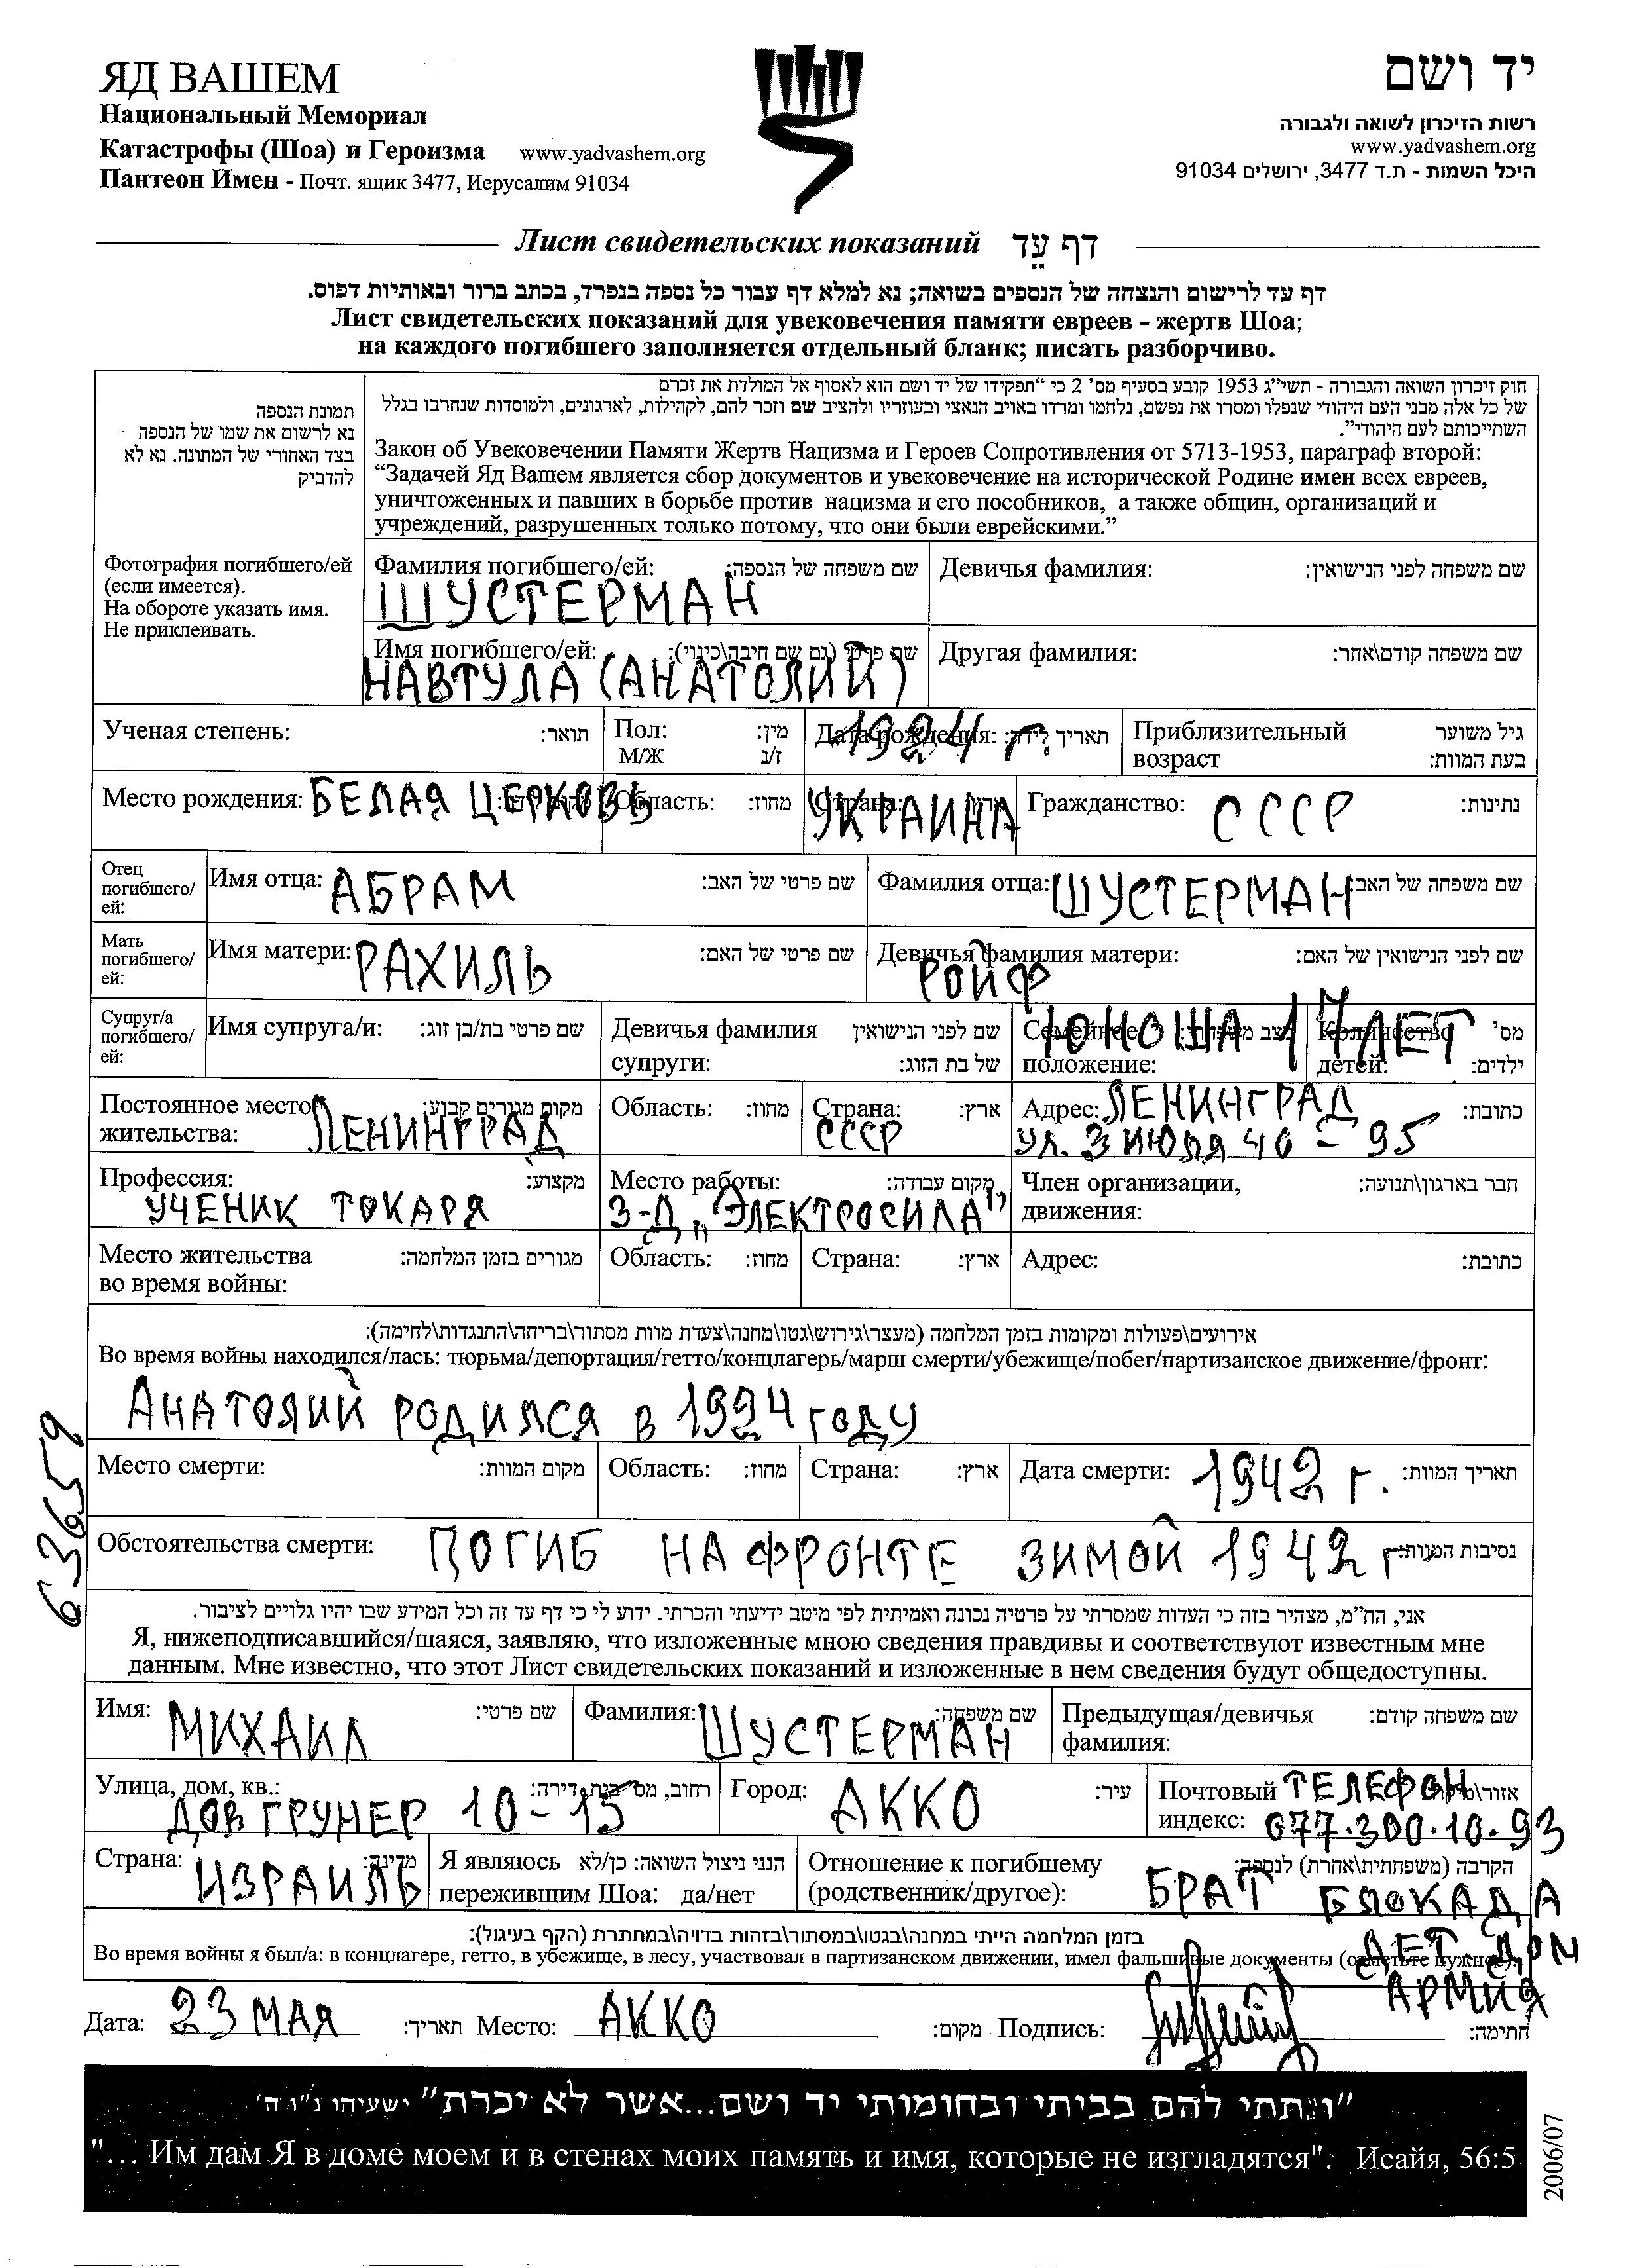 ЯД ВАШЕМ
Национальный Мемориал
Катастрофы (Шоа) и Героизма www.yadvashem.org
Пантеон Имен - Почт. ящик 3477, Иерусалим 91034
יד ושם
רשות הזיכרון לשואה ולגבורה
www.yadvashem.org
היכל השמות - ת.ד 3477, ירושלים 91034
Лист свидетельских показаний דף עֵד
דף עד לרישום והנצחה של הנספים בשואה; נא למלא דף עבור כל נספה בנפרד, בכתב ברור ובאותיות דפוס.
Лист свидетельских показаний для увековечения памяти евреев - жертв Шоа;
на каждого погибшего заполняется отдельный бланк; писать разборчиво.
תמונת הנספה
נא לרשום את שמו של הנספה
בצד האחורי של התמונה. נא לא
להדביק
Фотография погибшего/ей
(если имеется).
На обороте указать имя.
Не приклеивать.
חוק זיכרון השואה והגבורה - תשי"ג 1953 קובע בסעיף מס' 2 כי "תפקידו של יד ושם הוא לאסוף אל המולדת את זכרם
של כל אלה מבני העם היהודי שנפלו ומסרו את נפשם, נלחמו ומרדו באויב הנאצי ובעוזריו ולהציב שם וזכר להם, לקהילות, לארגונים, ולמוסדות שנחרבו בגלל
השתייכותם לעם היהודי".
Закон об Увековечении Памяти Жертв Нацизма и Героев Сопротивления от 5713-1953, параграф второй:
"Задачей Яд Вашем является сбор документов и увековечение на исторической Родине имен всех евреев,
уничтоженных и павших в борьбе против нацизма и его пособников, а также общин, организаций и
учреждений, разрушенных только потому, что они были еврейскими."
Фамилия погибшего/ей: שם משפחה של הנספה: Девичья фамилия: שם משפחה לפני הנישואין:
ШУСТЕРМАН
Имя погибшего/ей: שם פרטי (גם שם חיבה\כינוי): Другая фамилия: שם משפחה קודם\אחר:
НАВТУЛА (АНАТОЛИЙ)
Ученая степень: תואר: Пол: מין: Дата рождения: תאריך לידה: 1924 г. Приблизительный גיל משוער
М/Ж ז/נ возраст בעת המוות:
Место рождения: БЕЛАЯ ЦЕРКОВЬ Область: מחוז: Страна: ארץ: УКРАИНА Гражданство: СССР נתינות:
Отец
погибшего/
ей:
Имя отца: АБРАМ שם פרטי של האב: Фамилия отца: ШУСТЕРМАН שם משפחה של האב:
Мать
погибшего/
ей:
Имя матери: РАХИЛЬ שם פרטי של האם: Девичья фамилия матери: שם לפני הנישואין של האם:
РОЙФ
Супруг/а
погибшего/
ей:
Имя супруга/и: שם פרטי בת/בן זוג: Девичья фамилия שם לפני הנישואין Семейное מצב משפחתי: Количество מס'
супруги: של בת הזוג: положение: детей: ילדים:
ЮНОША 17 ЛЕТ
Постоянное место מקום מגורים קבוע: Область: מחוז: Страна: ארץ: Адрес: ЛЕНИНГРАД כתובת:
жительства: ЛЕНИНГРАД СССР УЛ. 3 ИЮЛЯ 40 - 95
Профессия: מקצוע: Место работы: מקום עבודה: Член организации, חבר בארגון\תנועה:
УЧЕНИК ТОКАРЯ З-Д „ЭЛЕКТРОСИЛА" движения:
Место жительства מגורים בזמן המלחמה: Область: מחוז: Страна: ארץ: Адрес: כתובת:
во время войны:
אירועים\פעולות ומקומות בזמן המלחמה (מעצר\גירוש\גטו\מחנה\צעדת מוות מסתור\בריחה\התנגדות\לחימה):
Во время войны находился/лась: тюрьма/депортация/гетто/концлагерь/марш смерти/убежище/побег/партизанское движение/фронт:
АНАТОЛИЙ РОДИЛСЯ В 1924 ГОДУ
Место смерти: מקום המוות: Область: מחוז: Страна: ארץ: Дата смерти: 1942 г. תאריך המוות:
Обстоятельства смерти: ПОГИБ НА ФРОНТЕ ЗИМОЙ 1942 г. נסיבות המוות:
63659
אני, הח"מ, מצהיר בזה כי העדות שמסרתי על פרטיה נכונה ואמיתית לפי מיטב ידיעתי והכרתי. ידוע לי כי דף עד זה וכל המידע שבו יהיו גלויים לציבור.
Я, нижеподписавшийся/шаяся, заявляю, что изложенные мною сведения правдивы и соответствуют известным мне
данным. Мне известно, что этот Лист свидетельских показаний и изложенные в нем сведения будут общедоступны.
Имя: МИХАИЛ שם פרטי: Фамилия: ШУСТЕРМАН שם משפחה: Предыдущая/девичья שם משפחה קודם:
фамилия:
Улица, дом, кв.: רחוב, מס' בית, דירה: Город: АККО עיר: Почтовый ТЕЛЕФОН
ДОВ ГРУНЕР 10 - 15 индекс: 077.300.10.93
Страна: ИЗРАИЛЬ מדינה: Я являюсь הנני ניצול השואה: כן/לא Отношение к погибшему הקרבה (משפחתית\אחרת) לנספה:
пережившим Шоа: да/нет (родственник/другое): БРАТ БЛОКАДА
בזמן המלחמה הייתי במחנה\בגטו\במסתור\בזהות בדויה\במחתרת (הקף בעיגול):
ДЕТ. ДОМ
Во время войны я был/а: в концлагере, гетто, в убежище, в лесу, участвовал в партизанском движении, имел фальшивые документы (отметьте нужное).
АРМИЯ
Дата: 23 МАЯ תאריך: Место: АККО מקום: Подпись: חתימה:
"ונתתי להם בביתי ובחומותי יד ושם...אשר לא יכרת" ישעיהו נ"ו ה'
"... Им дам Я в доме моем и в стенах моих память и имя, которые не изгладятся". Исайя, 56:5
2006/07